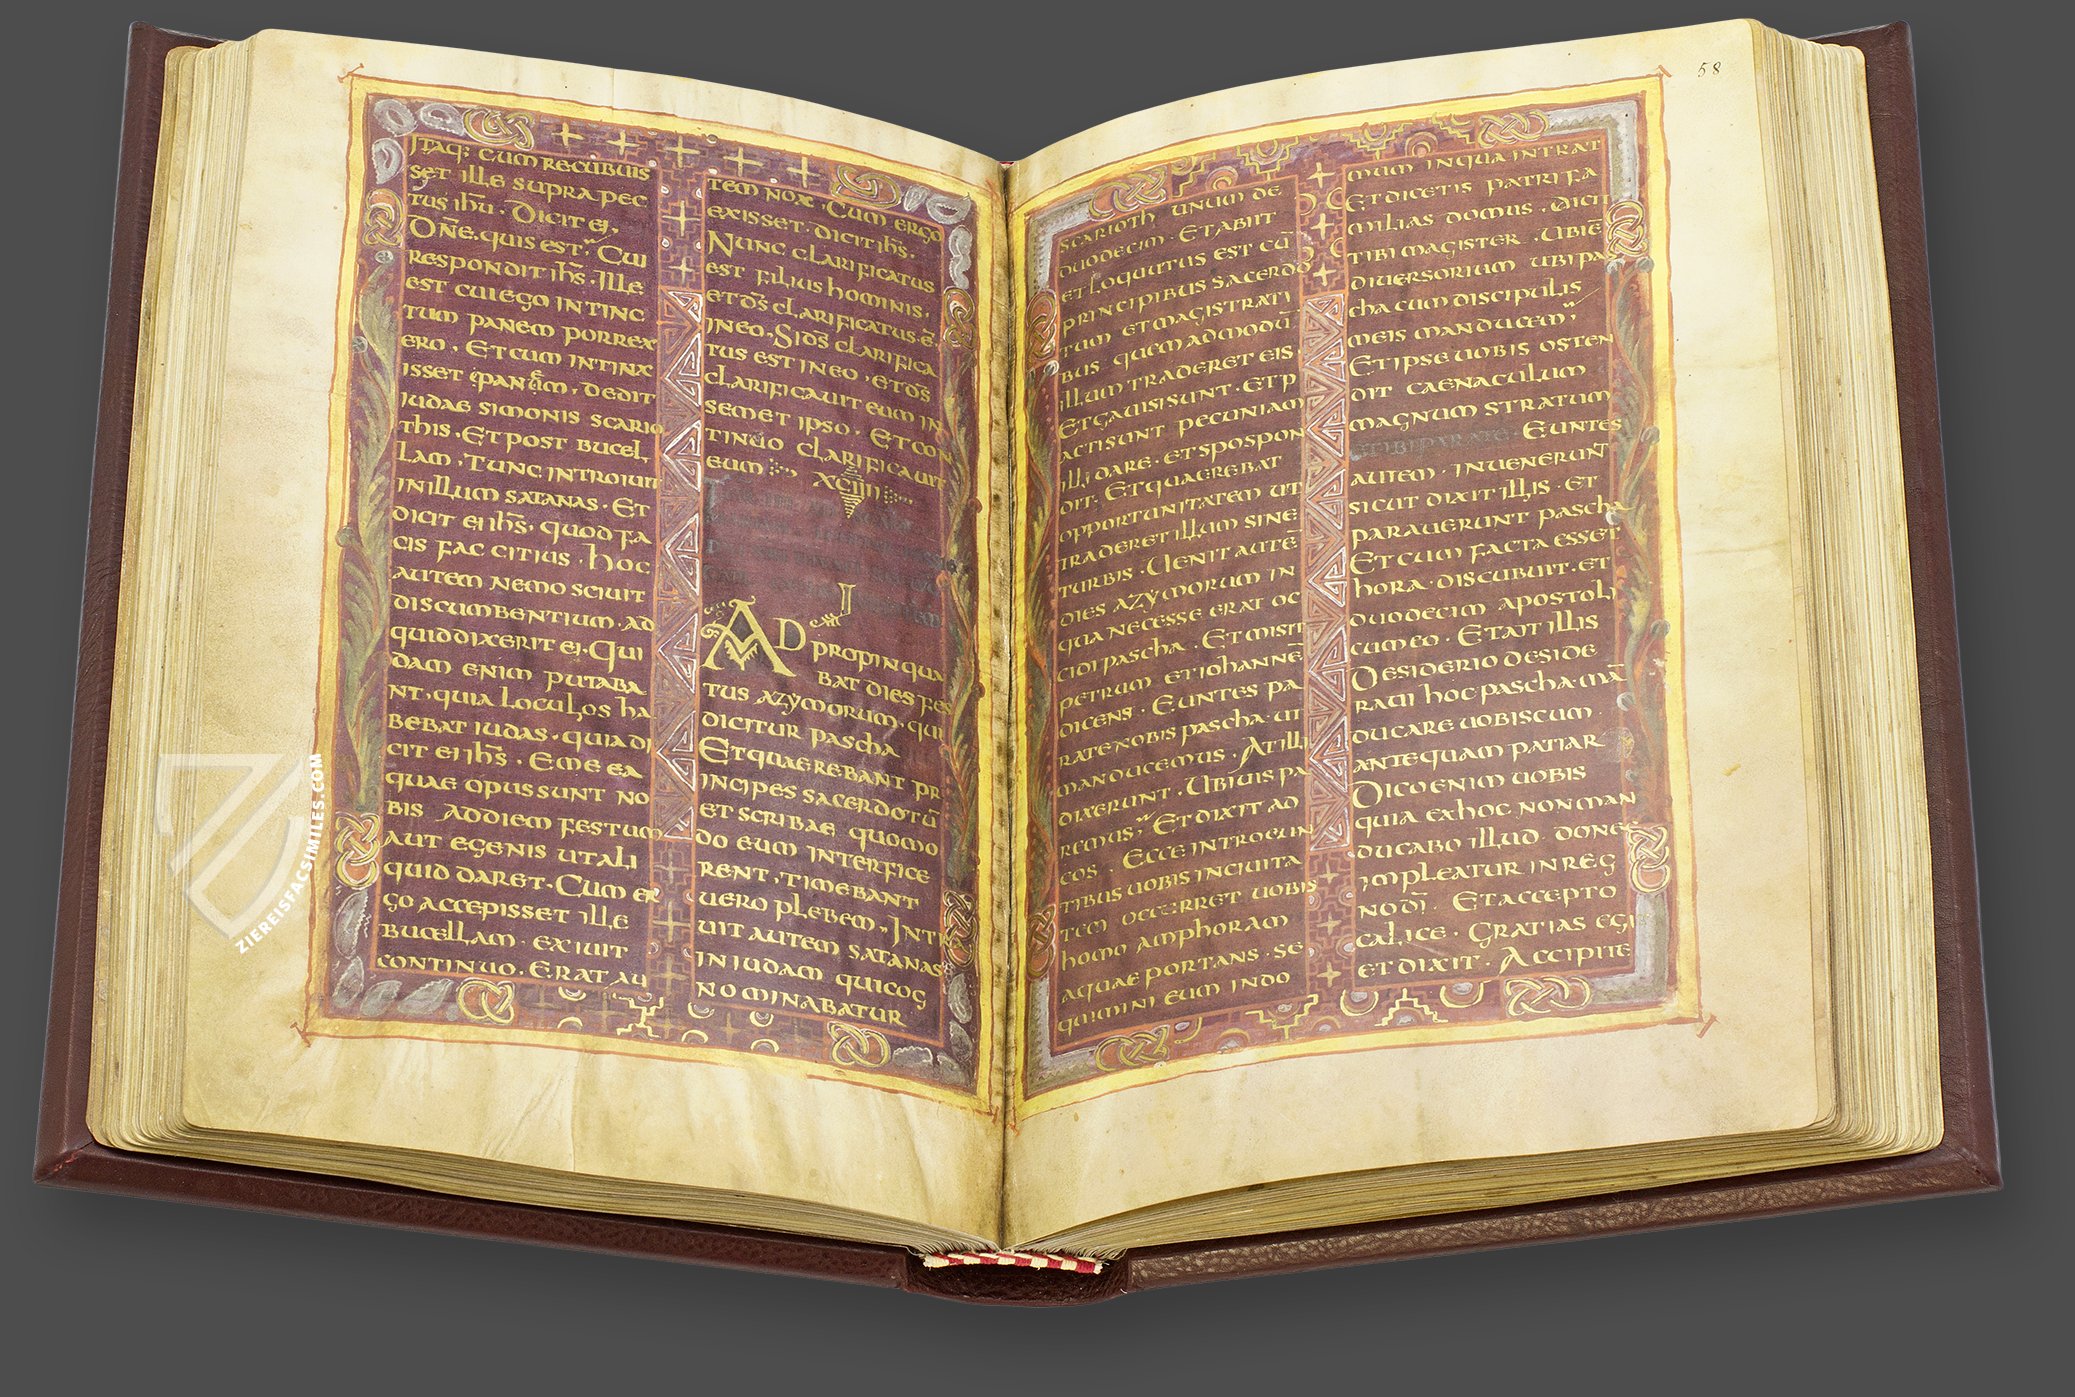 Itaq; cum recubuis
set ille supra pec
tus ihu · Dicit ei,
Dñe · quis est; Cui
respondit ihs · Ille
est cui ego intinc
tum panem porrex
ero · Et cum intinx
isset panem, dedit
iudae simonis scario
this · Et post bucel
lam, Tunc introiuit
in illum satanas · Et
dicit ei ihs · quod fa
cis fac citius · hoc
autem nemo sciuit
discumbentium, ad
quid dixerit ei · Qui
dam enim putaba
nt, quia loculos ha
bebat iudas · quia di
cit ei ihs · Eme ea
quae opus sunt no
bis ad diem festum
aut egenis ut ali
quid daret · Cum er
go accepisset ille
bucellam · exiuit
continuo · Erat au
tem nox · Cum ergo
exisset · dicit ihs ·
Nunc clarificatus
est filius hominis,
et ds clarificatus ē
in eo · Si ds clarifica
tus est in eo, et ds
clarificauit eum in
semet ipso · Et con
tinuo clarificauit
eum XCIIII
AD propinqua
bat dies fes
tus azymorum · qui
dicitur pascha
Et quaerebant pr
incipes sacerdotū
et scribae quomo
do eum interfice
rent, timebant
uero plebem, Int
uit autem satanas
in iudam qui cog
nominabatur
58
scarioth unum de
duodecim · Et abiit
et loquutus est cū
principibus sacerdo
tum et magistrati
bus quem admodū
illum traderet eis
Et gauisi sunt · Et p
acti sunt pecuniam
illi dare · et spopon
dit; Et quaerebat
opportunitatem ut
traderet illum sine
turbis · Uenit autē
dies azymorum in
qua necesse erat oc
cidi pascha · Et misit
petrum et iohannē
dicens · Euntes pa
rate nobis pascha · ut
manducemus · At illi
dixerunt · Ubi uis pa
remus; Et dixit ad
eos · Ecce introeun
tibus uobis in ciuita
tem occurret uobis
homo amphoram
aquae portans · se
quimini eum in do
mum in qua intrat
Et dicetis patri fa
milias domus · dicit
tibi magister · Ubi ē
diuersorium ubi pas
cha cum discipulis
meis manducem;
Et ipse uobis osten
dit caenaculum
magnum stratum
et ibi parate · Euntes
autem · inuenerunt
sicut dixit illis · et
parauerunt pascha
Et cum facta esset
hora · discubuit · et
duodecim apostoli
cum eo · Et ait illis
Desiderio deside
raui hoc pascha mā
ducare uobiscum
antequam patiar
Dico enim uobis
quia ex hoc non man
ducabo illud · donec
impleatur in reg
no di · Et accepto
calice · gratias egit
et dixit · Accipite
ZIEREISFACSIMILES.COM